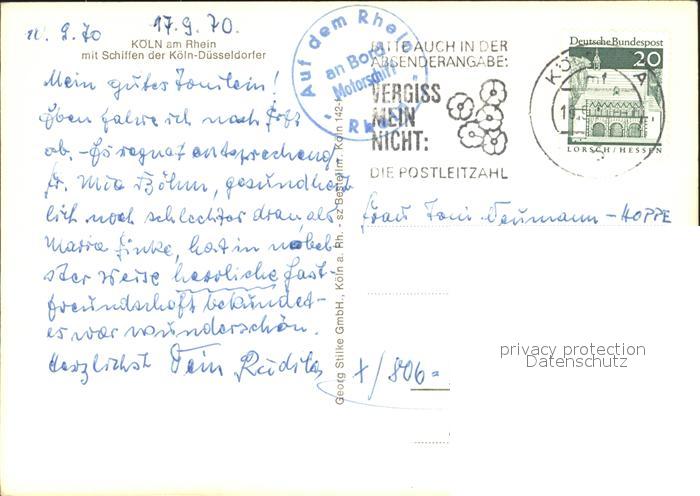 17.9.70.
KÖLN am Rhein
mit Schiffen der Köln-Düsseldorfer
Mein gutes
Eben fahre ich nach
ab. - Es regnet entsprechend
Fr. Mia Böhm, gesundheit
lich noch schlechter dran, als
Maria Finke, hat in nobel-
ster Weise herrliche Gast-
freundschaft bekundet -
es war wunderschön.
Herzlichst Dein
Auf dem Rhein
an Bord
Motorschiff
BITTE AUCH IN DER
ABSENDERANGABE:
VERGISS
MEIN
NICHT:
DIE POSTLEITZAHL
Deutsche Bundespost
20
LORSCH/HESSEN
Frau Toni Neumann-HOPPE
Georg Stilke GmbH., Köln a. Rh. - sz Bestellnr. Köln 142
privacy protection
Datenschutz